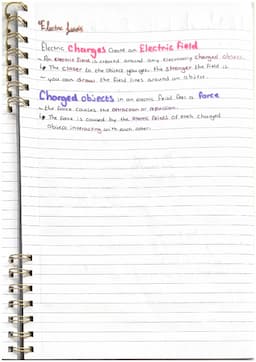 Electric fields
Electric Charges create an Electric Field
- An electric field is created around any electrically charged object.
↳ The closer to the object you get, the stronger the field is
- you can draw the field lines around an object.
Charged objects in an electric field feel a force
- the force causes the attraction or repulsion.
↳ The force is caused by the electric fields of each charged
object interacting with each other.